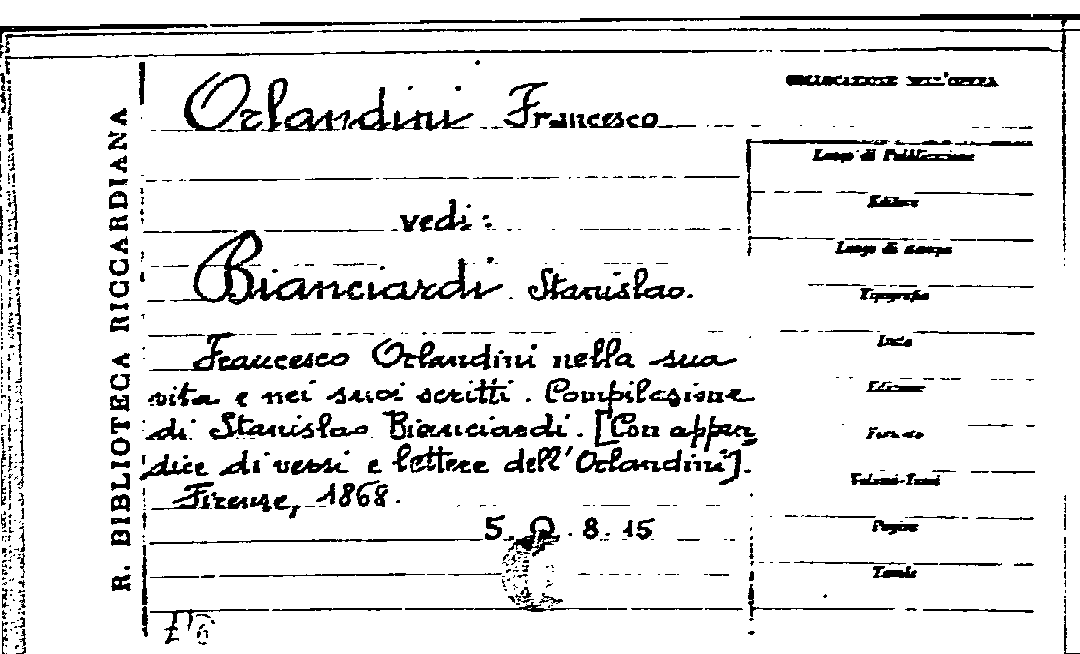 R. BIBLIOTECA RICCARDIANA
Orlandini Francesco
vedi:
Bianciardi Stanislao.
Francesco Orlandini nella sua
vita e nei suoi scritti. Compilazione
di Stanislao Bianciardi. [Con appen
dice di versi e lettere dell'Orlandini].
Firenze, 1868.
5. Q. 8. 15
COLLOCAZIONE DELL'OPERA
Luogo di Pubblicazione
Editore
Luogo di stampa
Tipografia
Data
Edizione
Formato
Volumi-Tomi
Pagine
Tavole